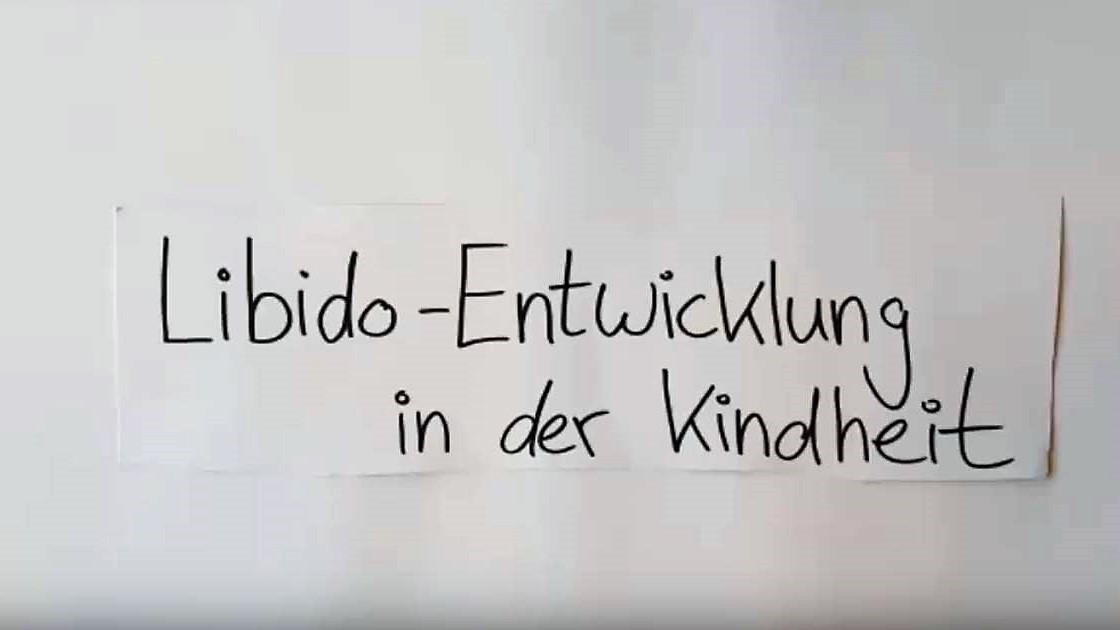 Libido-Entwicklung
in der Kindheit